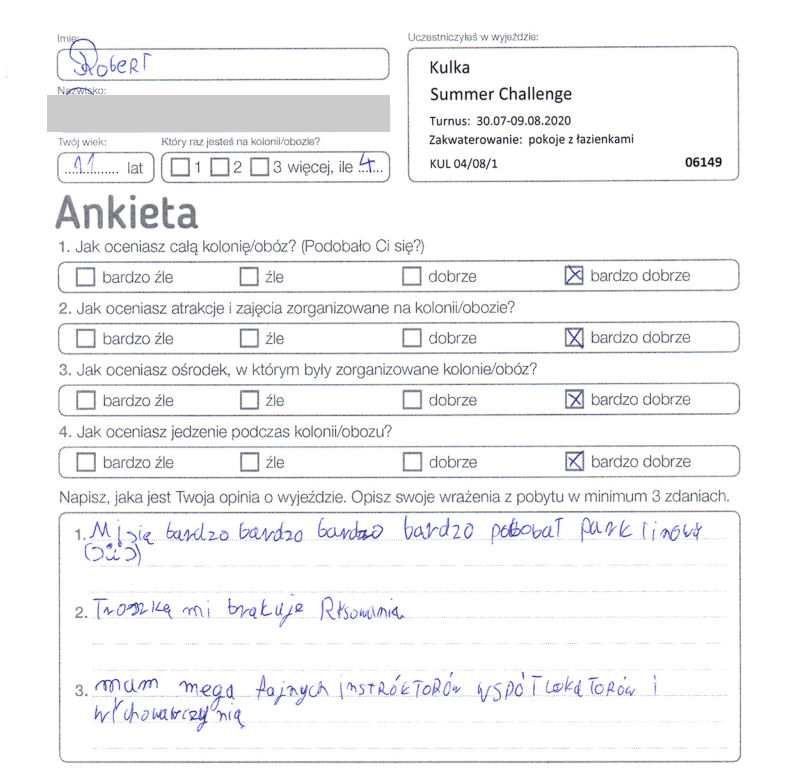 Imię:
Robert
Uczestniczyłeś w wyjeździe:
Kulka
Summer Challenge
Turnus: 30.07-09.08.2020
Zakwaterowanie: pokoje z łazienkami
KUL 04/08/1 06149
Nazwisko:
Twój wiek:
11 lat
Który raz jesteś na kolonii/obozie?
1 2 3 więcej, ile 4
Ankieta
1. Jak oceniasz całą kolonię/obóz? (Podobało Ci się?)
bardzo źle źle dobrze bardzo dobrze
2. Jak oceniasz atrakcje i zajęcia zorganizowane na kolonii/obozie?
bardzo źle źle dobrze bardzo dobrze
3. Jak oceniasz ośrodek, w którym były zorganizowane kolonie/obóz?
bardzo źle źle dobrze bardzo dobrze
4. Jak oceniasz jedzenie podczas kolonii/obozu?
bardzo źle źle dobrze bardzo dobrze
Napisz, jaka jest Twoja opinia o wyjeździe. Opisz swoje wrażenia z pobytu w minimum 3 zdaniach.
1. Mi się bardzo bardzo bardzo bardzo podobał park linowy
2. Troszkę mi brakuje Rysowania
3. mam mega fajnych instróktorów wspótlokatorów i
wychowawczynią